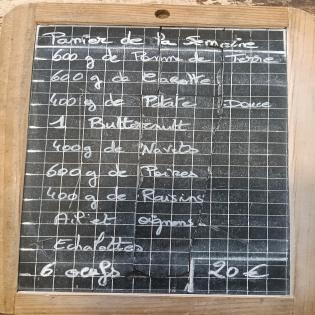 Panier de la Semaine
600 g de Pomme de Terre
600 g de Carotte
400 g de Patate Douce
1 Butternut
400g de Navets
600 g de Poires
400 g de Raisins
Ail et oignons
Echalottes
6 oeufs 20 €